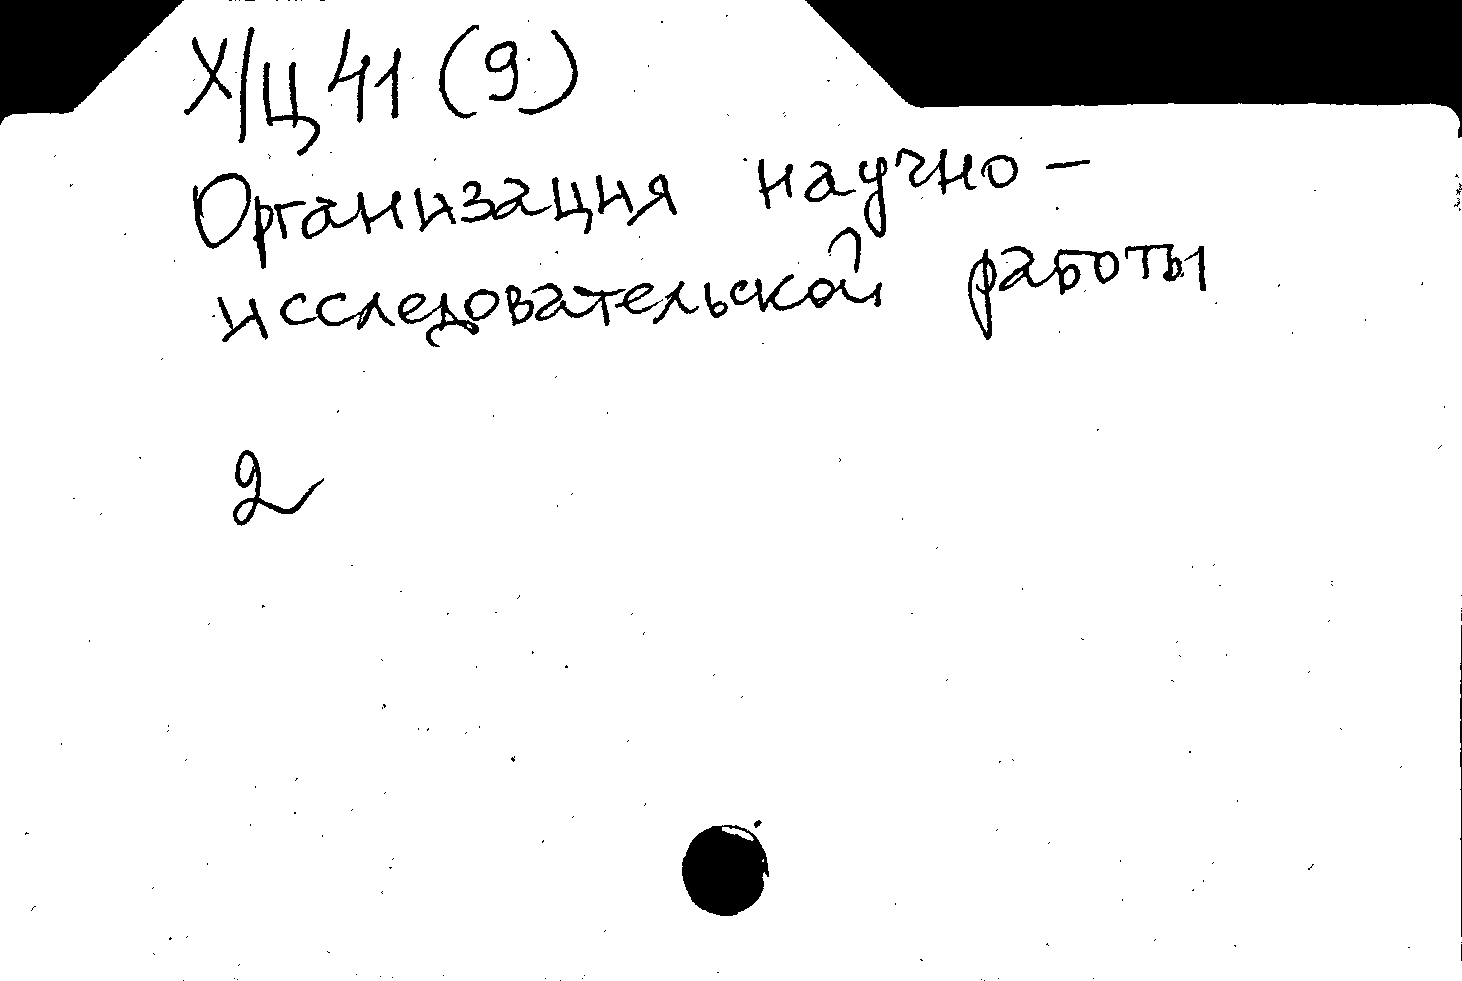 Х/Ц 41 (9)
Организация научно-
исследовательской работы
2